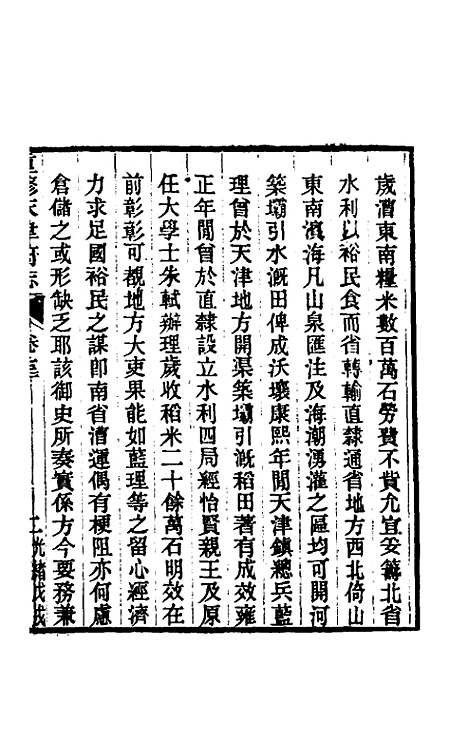 歲漕東南糧米數百萬石勞費不貲允宜妥籌北省
水利以裕民食而省轉輸直隸通省地方西北倚山
東南濱海凡山泉匯注及海潮湧灌之區均可開河
築壩引水漑田俾成沃壤康熙年閒天津鎮總兵藍
理曾於天津地方開渠築壩引漑稻田著有成效雍
正年閒曾於直隸設立水利四局經怡賢親王及原
任大學士朱軾辦理歲收稻米二十餘萬石明效在
前彰彰可覩地方大吏果能如藍理等之留心經濟
力求足國裕民之謀卽南省漕運偶有梗阻亦何慮
倉儲之或形缺乏耶該御史所奏實係方今要務兼
重修天津府志 卷三 二 光緒戊戌